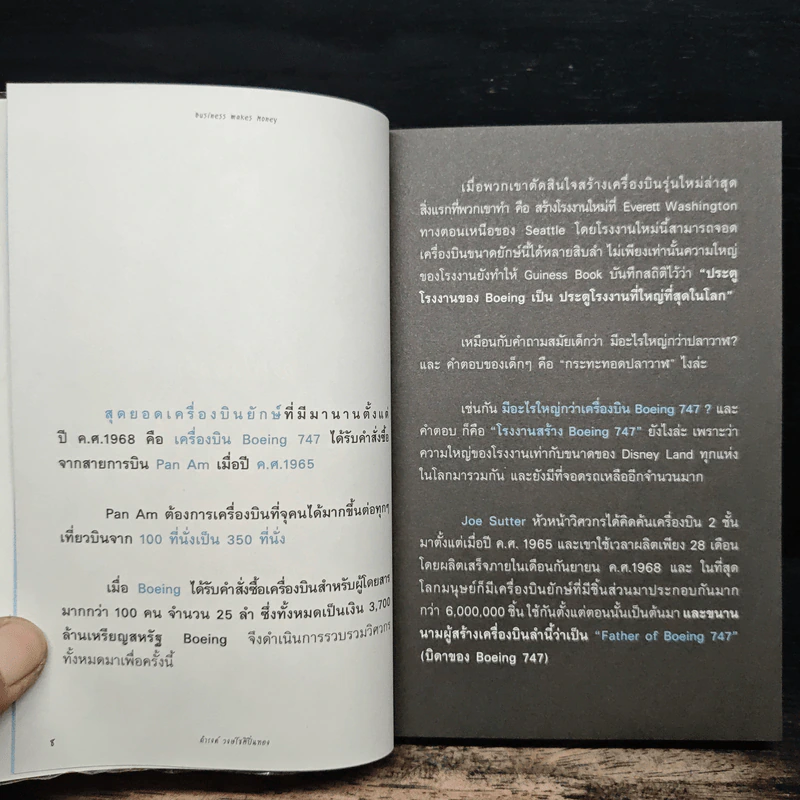 Business Makes Money
สุดยอดเครื่องบินยักษ์ที่มีมานานตั้งแต่
ปี ค.ศ.1968 คือ เครื่องบิน Boeing 747 ได้รับคำสั่งซื้อ
จากสายการบิน Pan Am เมื่อปี ค.ศ.1965
Pan Am ต้องการเครื่องบินที่จุคนได้มากขึ้นต่อทุกๆ
เที่ยวบินจาก 100 ที่นั่งเป็น 350 ที่นั่ง
เมื่อ Boeing ได้รับคำสั่งซื้อเครื่องบินสำหรับผู้โดยสาร
มากกว่า 100 คน จำนวน 25 ลำ ซึ่งทั้งหมดเป็นเงิน 3,700
ล้านเหรียญสหรัฐ Boeing จึงดำเนินการรวบรวมวิศวกร
ทั้งหมดมาเพื่อครั้งนี้
8
ดำรงค์ วงษ์โชติปิ่นทอง
เมื่อพวกเขาตัดสินใจสร้างเครื่องบินรุ่นใหม่ล่าสุด
สิ่งแรกที่พวกเขาทำ คือ สร้างโรงงานใหม่ที่ Everett Washington
ทางตอนเหนือของ Seattle โดยโรงงานใหม่นี้สามารถจอด
เครื่องบินขนาดยักษ์นี้ได้หลายสิบลำ ไม่เพียงเท่านั้นความใหญ่
ของโรงงานยังทำให้ Guiness Book บันทึกสถิติไว้ว่า "ประตู
โรงงานของ Boeing เป็น ประตูโรงงานที่ใหญ่ที่สุดในโลก"
เหมือนกับคำถามสมัยเด็กว่า มีอะไรใหญ่กว่าปลาวาฬ?
และ คำตอบของเด็กๆ คือ "กระทะทอดปลาวาฬ" ไงล่ะ
เช่นกัน มีอะไรใหญ่กว่าเครื่องบิน Boeing 747 ? และ
คำตอบ ก็คือ "โรงงานสร้าง Boeing 747" ยังไงล่ะ เพราะว่า
ความใหญ่ของโรงงานเท่ากับขนาดของ Disney Land ทุกแห่ง
ในโลกมารวมกัน และยังมีที่จอดรถเหลืออีกจำนวนมาก
Joe Sutter หัวหน้าวิศวกรได้คิดค้นเครื่องบิน 2 ชั้น
มาตั้งแต่เมื่อปี ค.ศ. 1965 และเขาใช้เวลาผลิตเพียง 28 เดือน
โดยผลิตเสร็จภายในเดือนกันยายน ค.ศ.1968 และ ในที่สุด
โลกมนุษย์ก็มีเครื่องบินยักษ์ที่มีชิ้นส่วนมาประกอบกันมาก
กว่า 6,000,000 ชิ้น ใช้กันตั้งแต่ตอนนั้นเป็นต้นมา และขนาน
นามผู้สร้างเครื่องบินลำนี้ว่าเป็น "Father of Boeing 747"
(บิดาของ Boeing 747)